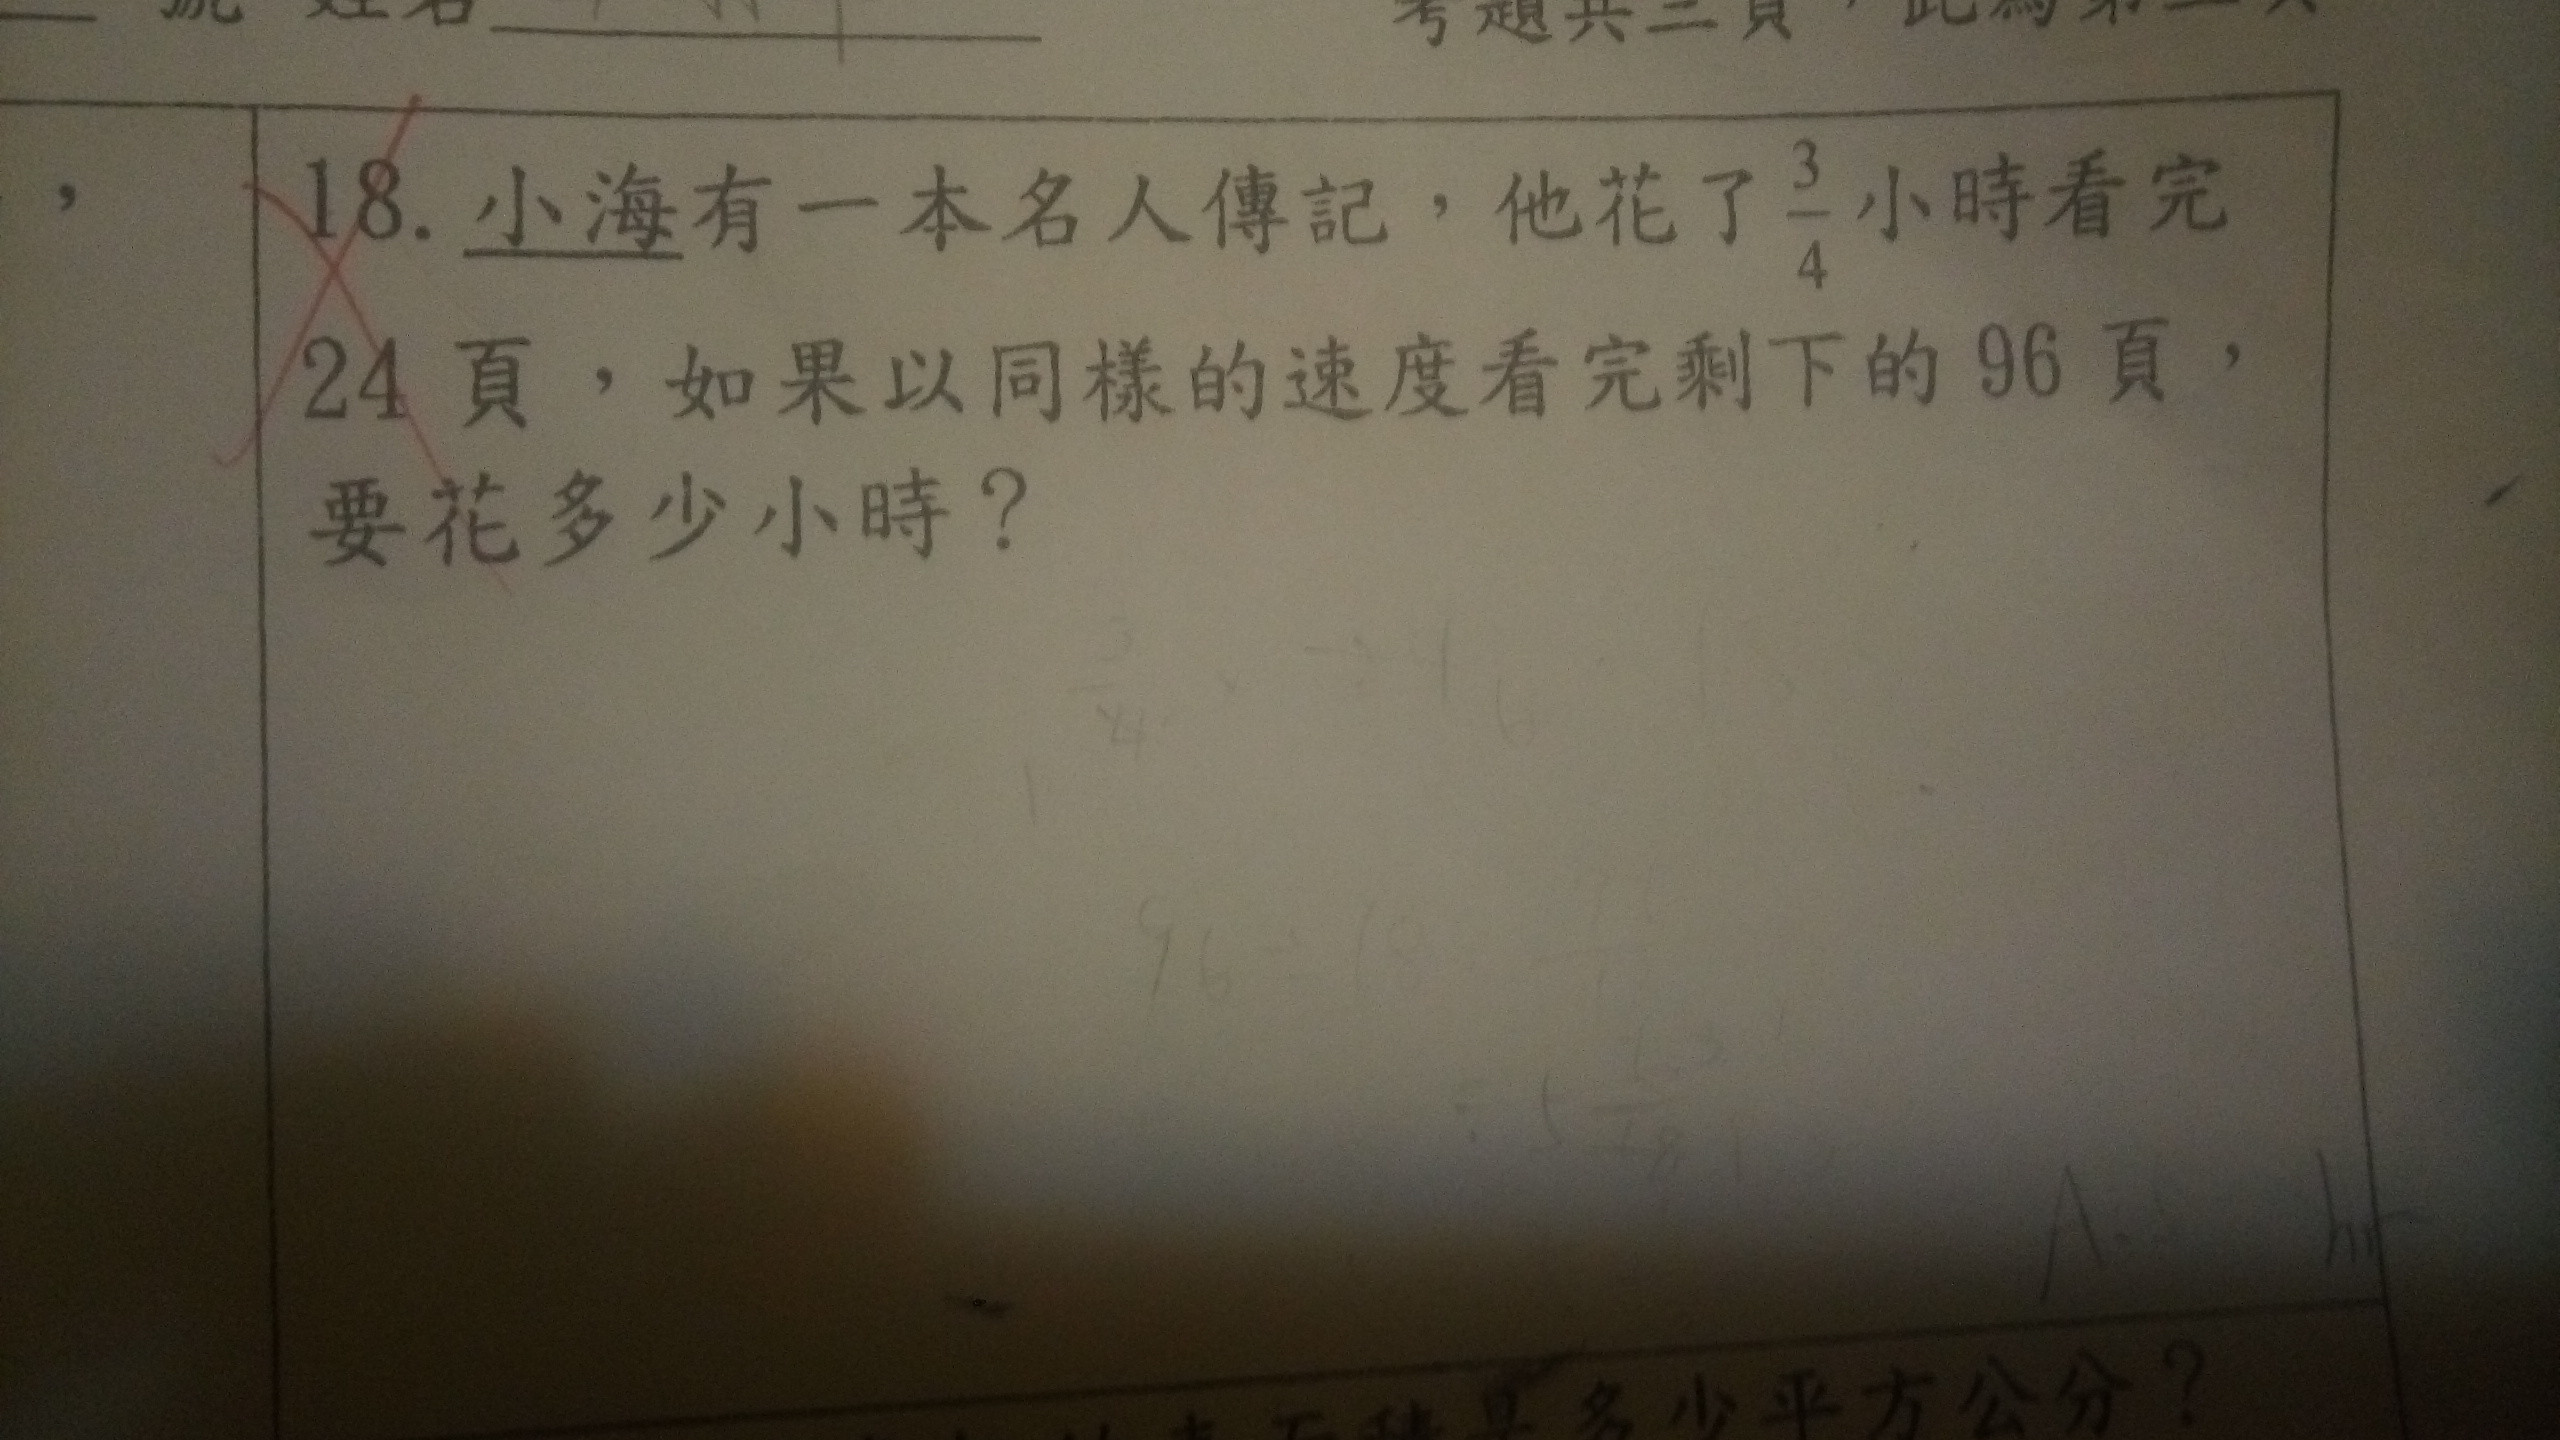 號 姓名
考題共三頁，此為第二頁
18. 小海有一本名人傳記，他花了 3/4 小時看完
24 頁，如果以同樣的速度看完剩下的 96 頁，
要花多少小時？
3/4 × 24
96 ÷ 18
A: hr
多少平方公分？